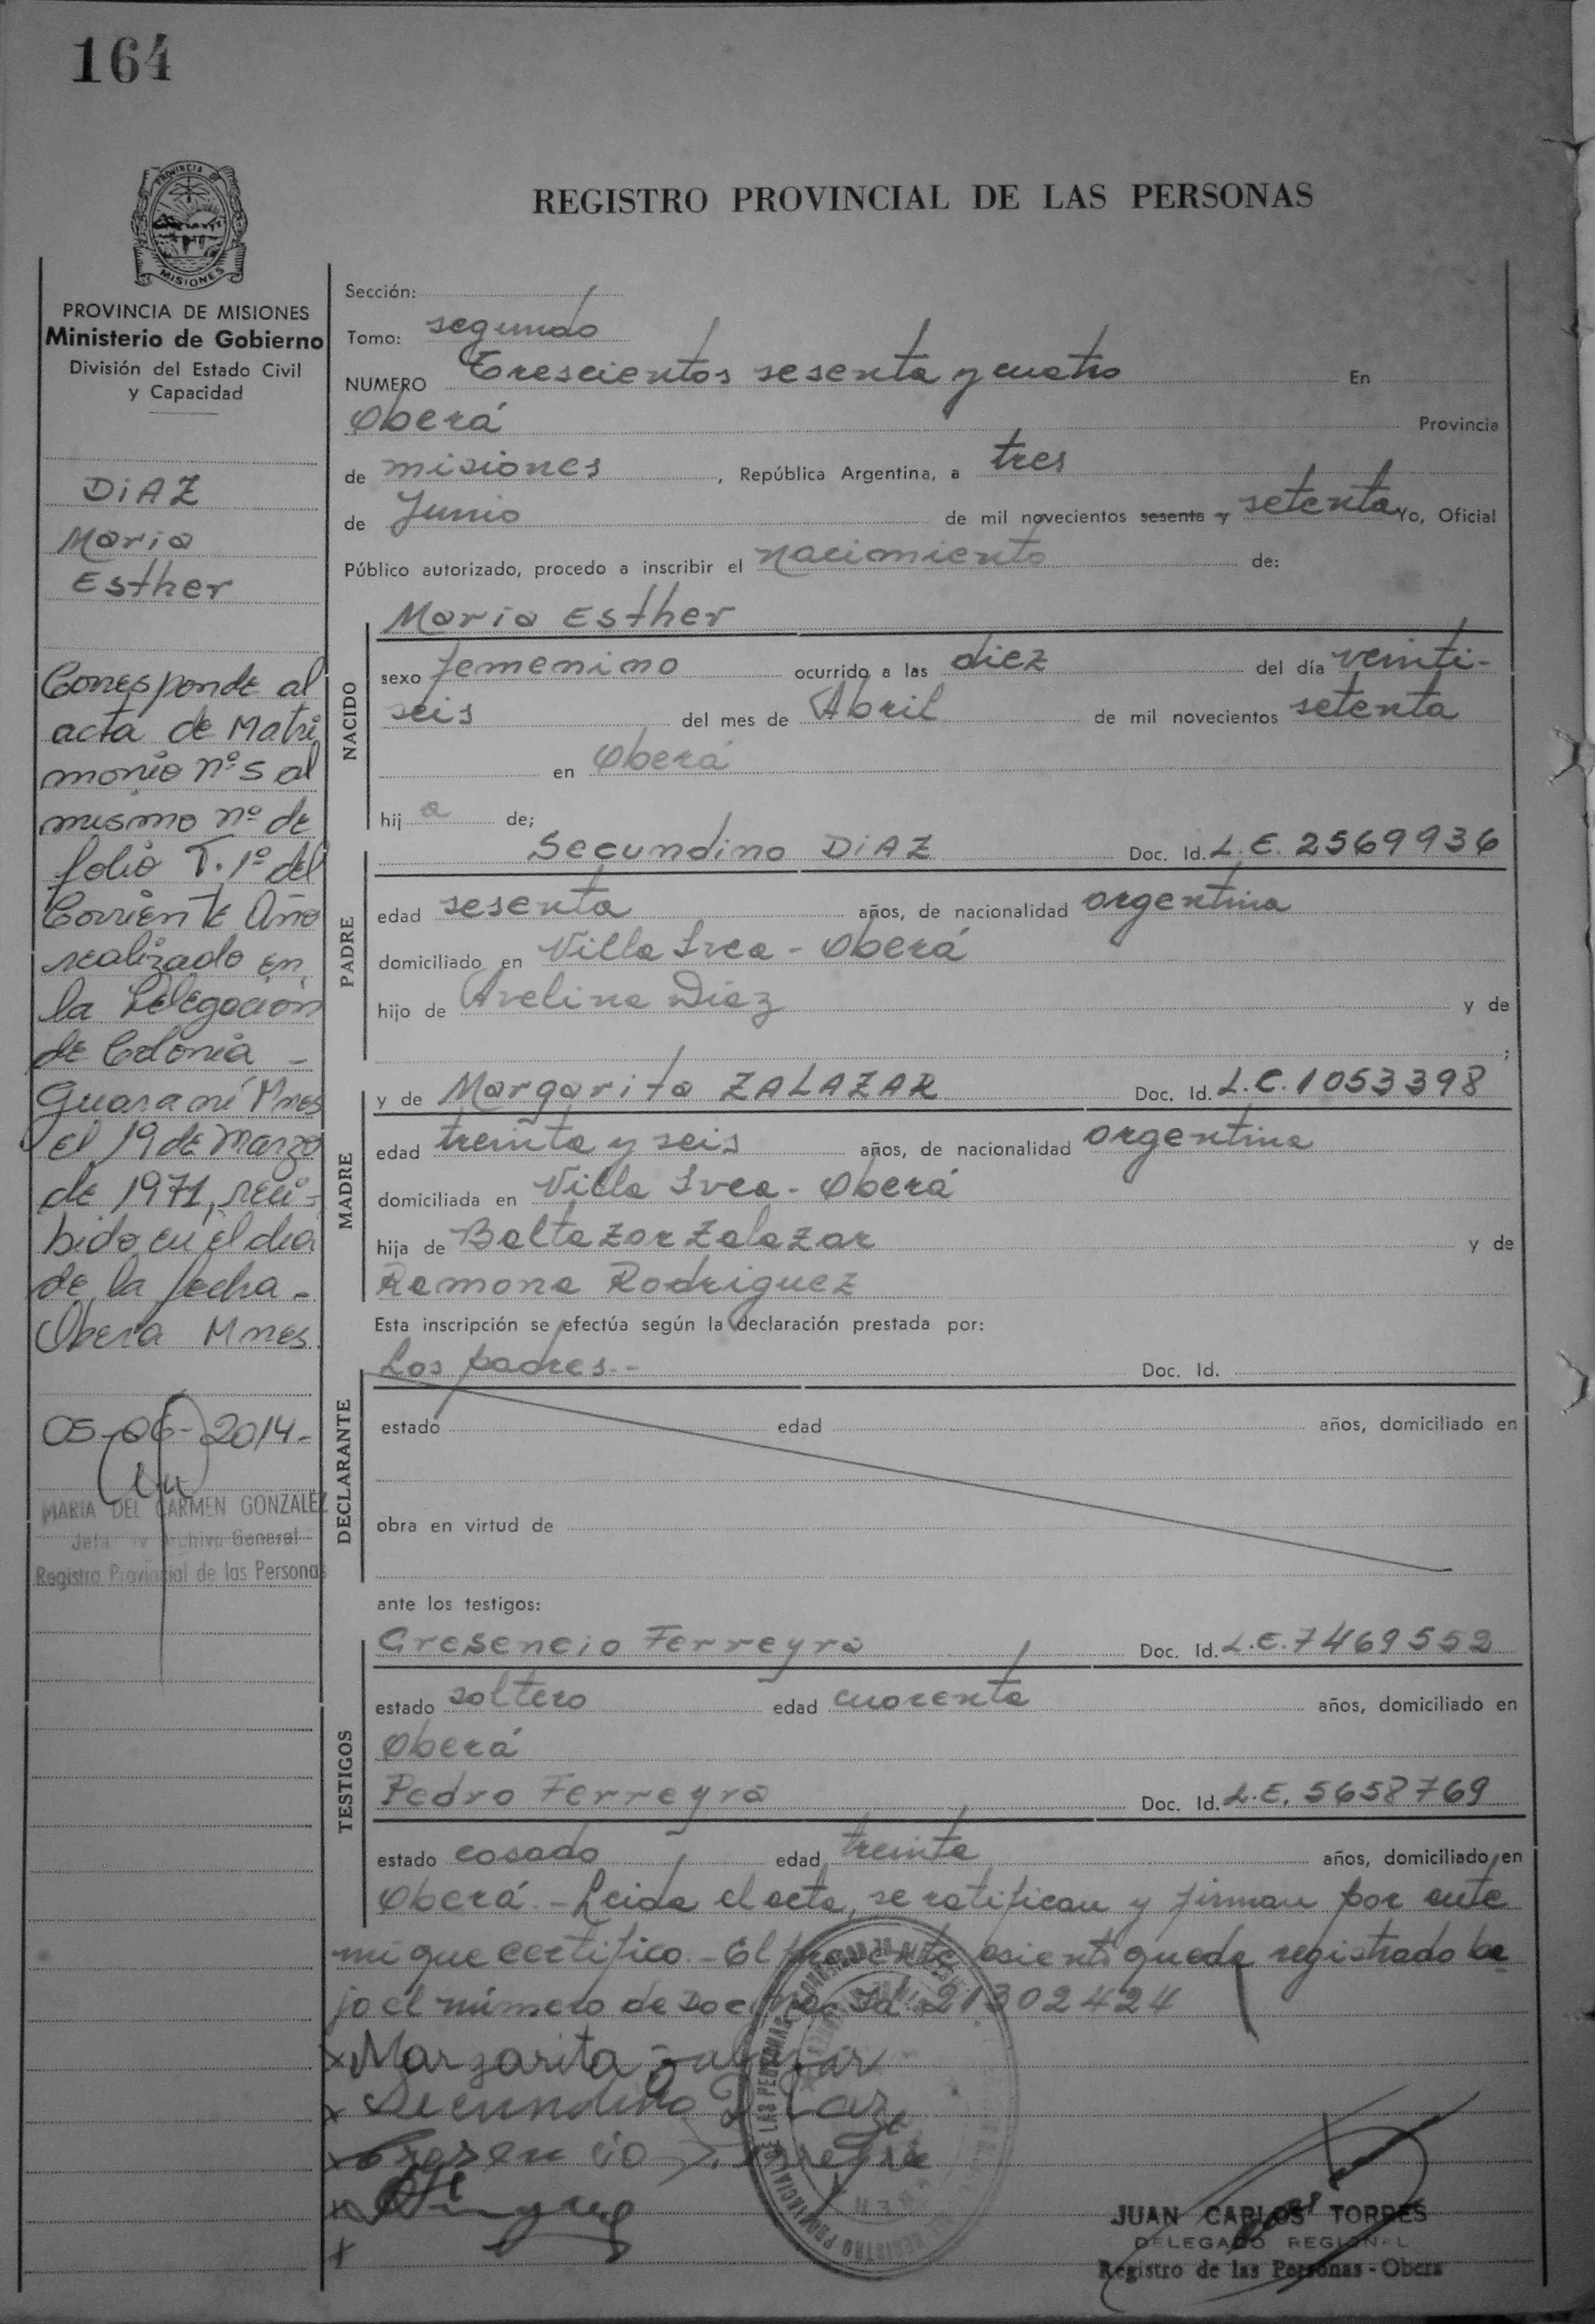 164
PROVINCIA DE MISIONES
REGISTRO PROVINCIAL DE LAS PERSONAS
PROVINCIA DE MISIONES
Ministerio de Gobierno
División del Estado Civil
y Capacidad
DIAZ
Maria
Esther
Corresponde al
acta de Matri
monio nº 5 al
mismo nº de
folio T. 1º del
Corriente Año
realizado en
la Delegación
de Colonia -
Guaraní Mnes
el 19 de Marzo
de 1971, reci-
bido en el dia
de la fecha -
Oberá Mnes
05-06-2014-
MARIA DEL CARMEN GONZALEZ
Jefa Archivo General
Registro Provincial de las Personas
Sección:
Tomo: segundo
NUMERO Trescientos sesenta y cuatro En
Oberá Provincia
de misiones, República Argentina, a tres
de Junio de mil novecientos sesenta y setenta Yo, Oficial
Público autorizado, procedo a inscribir el nacimiento de:
NACIDO
Maria Esther
sexo femenino ocurrido a las diez del día veinti-
seis del mes de Abril de mil novecientos setenta
en Oberá
hija de;
PADRE
Secundino DIAZ Doc. Id. L.E. 2569936
edad sesenta años, de nacionalidad argentina
domiciliado en Villa Svea - Oberá
hijo de Avelina Diaz y de
;
MADRE
y de Margarita ZALAZAR Doc. Id. L.C. 1053398
edad treinta y seis años, de nacionalidad argentina
domiciliada en Villa Svea - Oberá
hija de Baltazar Zalazar y de
Ramona Rodriguez
Esta inscripción se efectúa según la declaración prestada por:
DECLARANTE
Los padres.- Doc. Id.
estado edad años, domiciliado en
obra en virtud de
ante los testigos:
TESTIGOS
Cresencio Ferreyra Doc. Id. L.E. 7469552
estado soltero edad cuarenta años, domiciliado en
Oberá
Pedro Ferreyra Doc. Id. L.E. 5658769
estado casado edad treinta años, domiciliado en
Oberá.- Leida el acta, se ratifican y firman por ante
mi que certifico.- El presente asiento queda registrado ba
jo el número de Doc. Nac. Id. 21302424
x Margarita Zalazar
x Secundino Diaz
x Cresencio Ferreyra
x
x
JUAN CARLOS TORRES
DELEGADO REGIONAL
Registro de las Personas - Obera